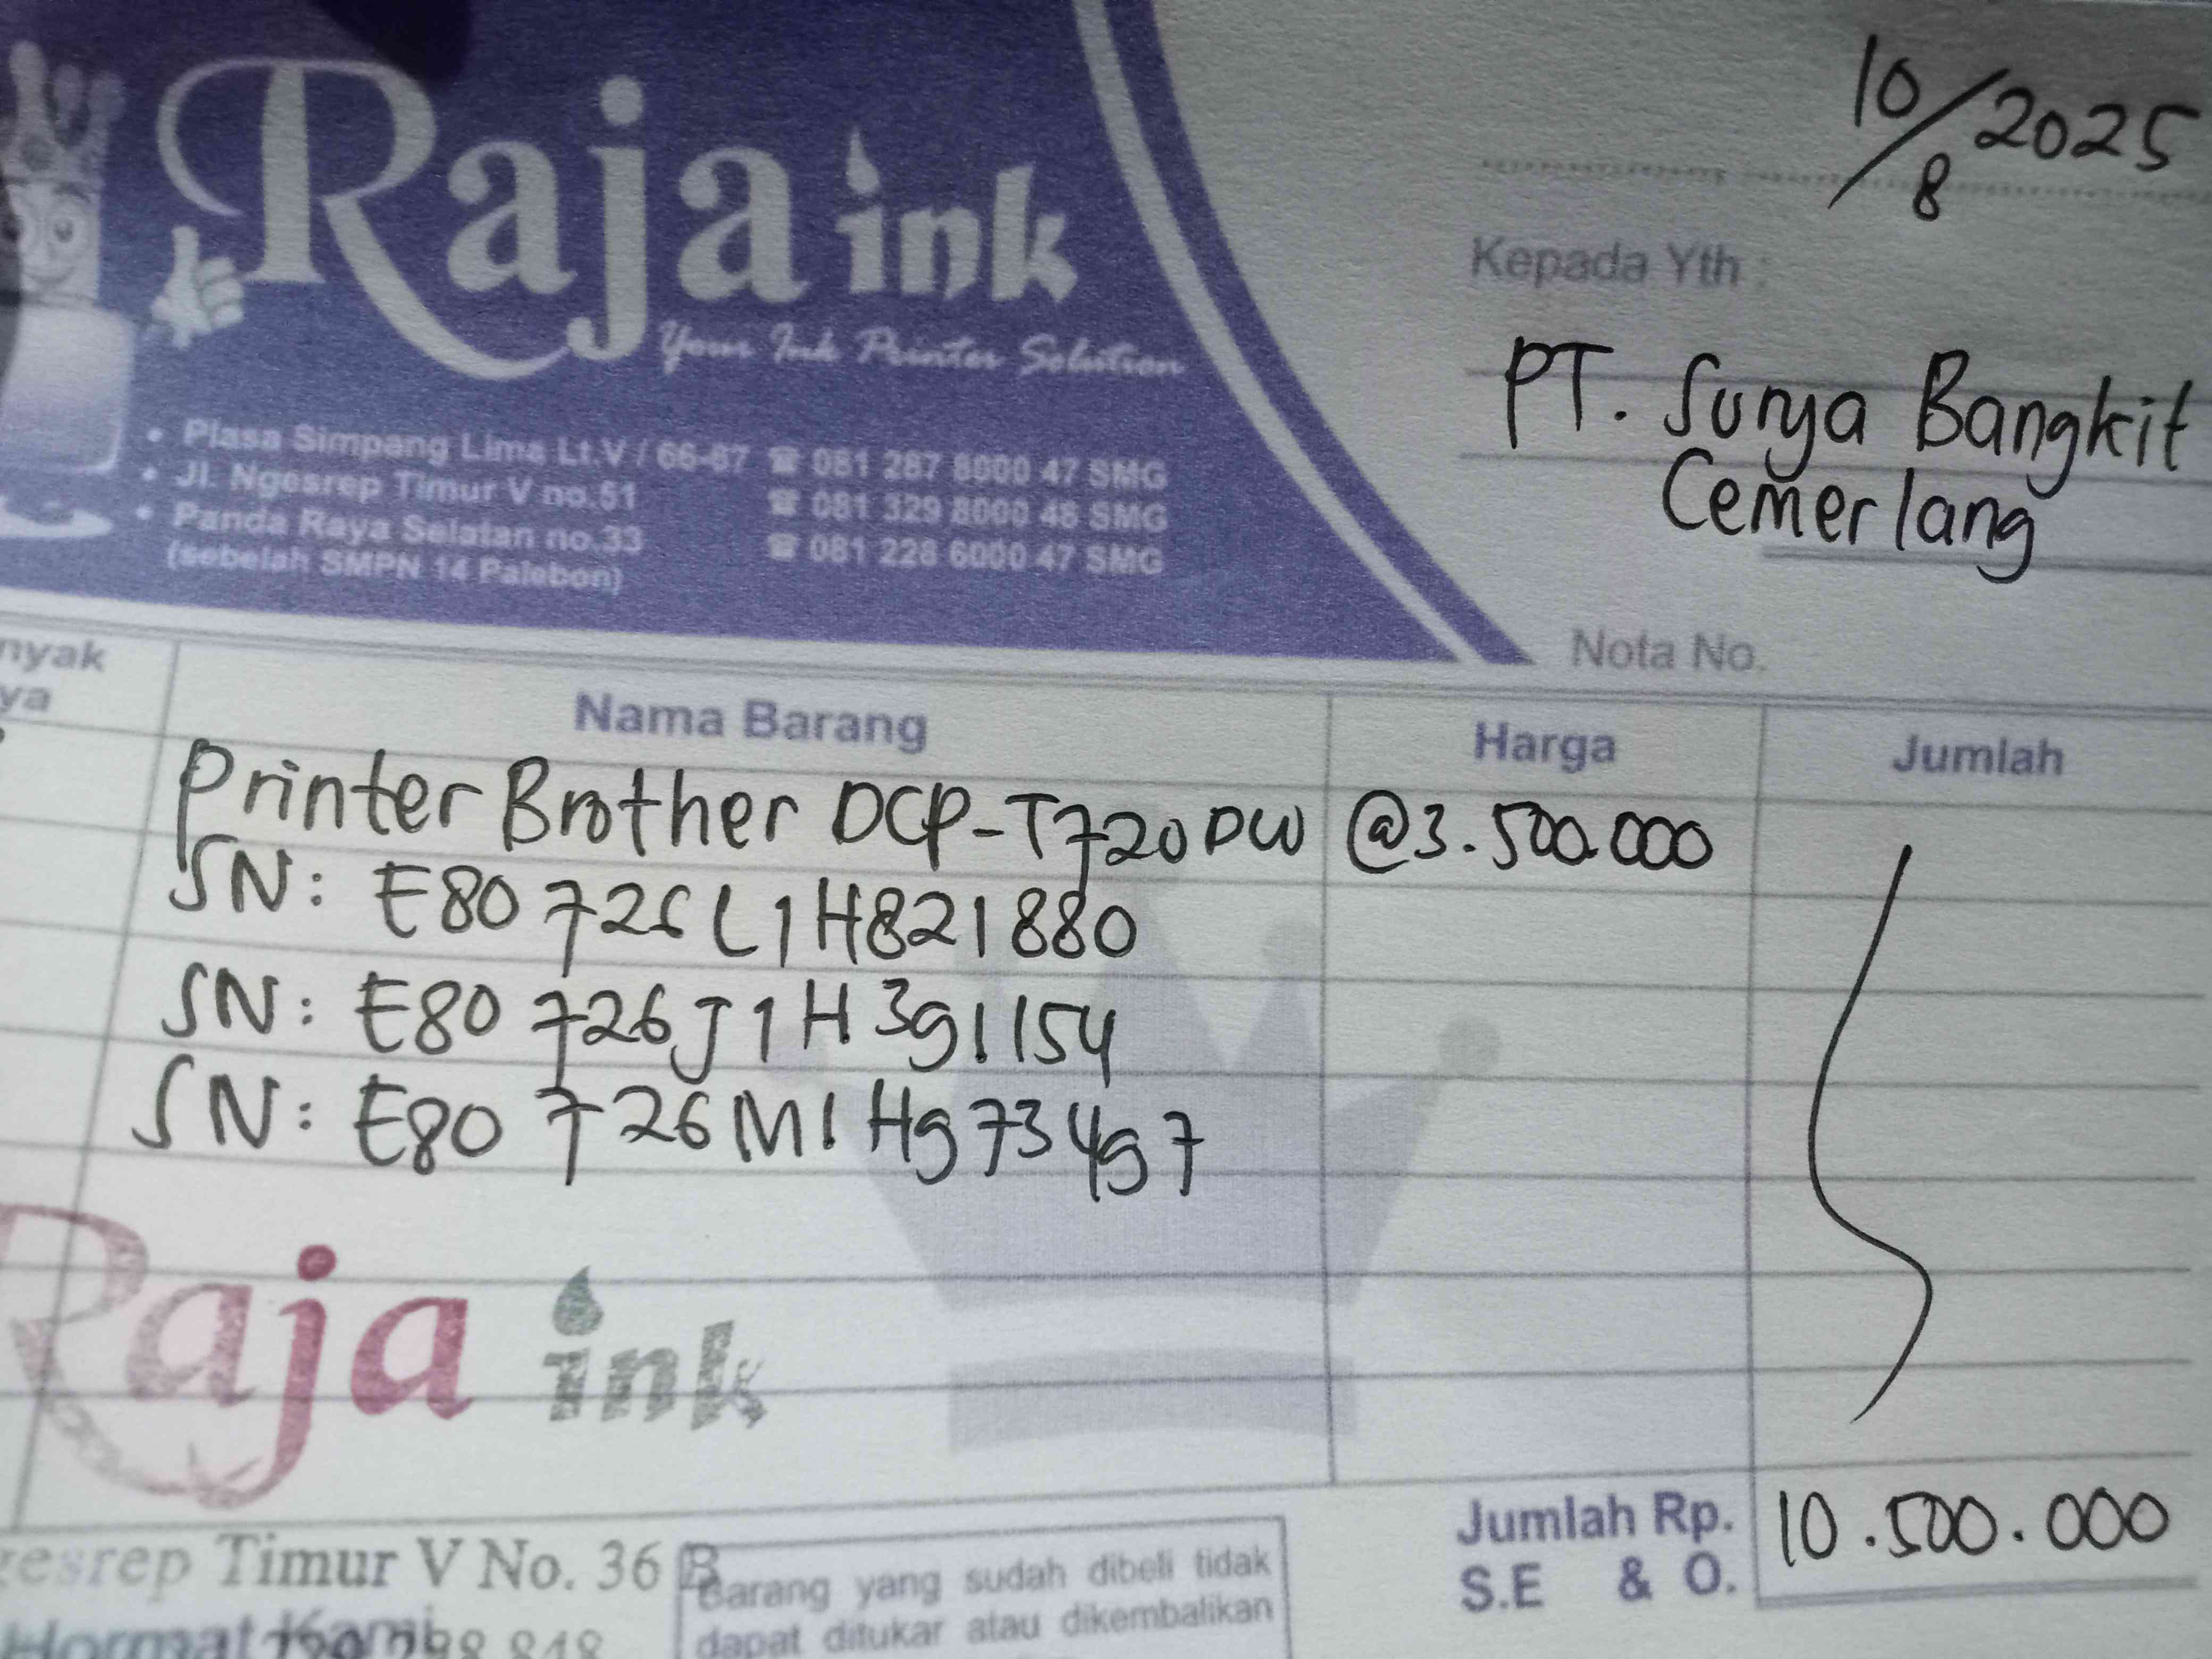 Raja ink
Your Ink Printer Solution
• Plasa Simpang Lima Lt.V / 66-67 ☎ 081 287 8000 47 SMG
• Jl. Ngesrep Timur V no.51 ☎ 081 329 8000 48 SMG
• Panda Raya Selatan no.33 ☎ 081 228 6000 47 SMG
(sebelah SMPN 14 Palebon)
10/8 2025
Kepada Yth :
PT. Surya Bangkit
Cemerlang
Nota No.
nyak
ya
Nama Barang Harga Jumlah
Printer Brother DCP-T720DW @3.500.000
SN: E80726L1H821880
SN: E80726J1H391154
SN: E80726M1H973497
Raja ink
gesrep Timur V No. 36 B
Hormat Kami
298 848
Barang yang sudah dibeli tidak
dapat ditukar atau dikembalikan
Jumlah Rp. 10.500.000
S.E & O.